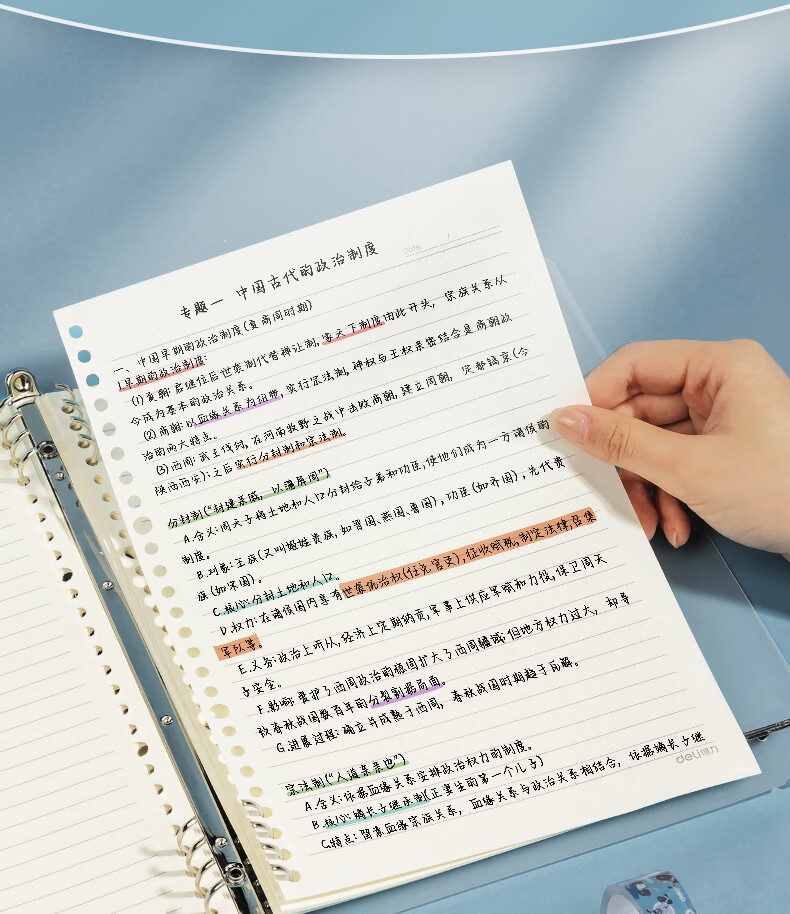 Date: /
专题一 中国古代的政治制度
一、中国早期的政治制度(夏商周时期)
1.早期的政治制度:
(1)夏朝:启继位后世袭制代替禅让制,家天下制度由此开头, 宗族关系从
今成为基本的政治关系。
(2)商朝:以血缘关系为纽带,实行宗法制,神权与王权亲密结合是商朝政
治的两大特点。
(3)西周:武王伐纣,在河南牧野之战中击败商朝,建立周朝, 定都镐京(今
陕西西安);之后实行分封制和宗法制。
分封制("封建亲戚, 以藩屏周")
A.含义:周天子将土地和人口分封给子弟和功臣,使他们成为一方诸侯的
制度。
B.对象:王族(又叫姬姓贵族,如晋国、燕国、鲁国),功臣(如齐国),先代贵
族(如宋国)。
C.核心:分封土地和人口。
D.权力:在诸侯国内享有世袭统治权(任免官吏),征收赋税,制定法律,召集
军队等。
E.义务:政治上听从,经济上定期纳贡,军事上供应军赋和力役,保卫周天
子安全。
F.影响:爱护了西周政治的稳固扩大了西周疆域;但地方权力过大, 却导
致春秋战国数百年的分裂割据局面。
G.进展过程:确立并成熟于西周, 春秋战国时期趋于瓦解。
宗法制("人道亲亲也")
A.含义:依据血缘关系安排政治权力的制度。
B.核心:嫡长子继承制(正妻生的第一个儿子)
C.特点:閉素血缘宗族关系, 血缘关系与政治关系相结合, 依据嫡长子继
deli得力